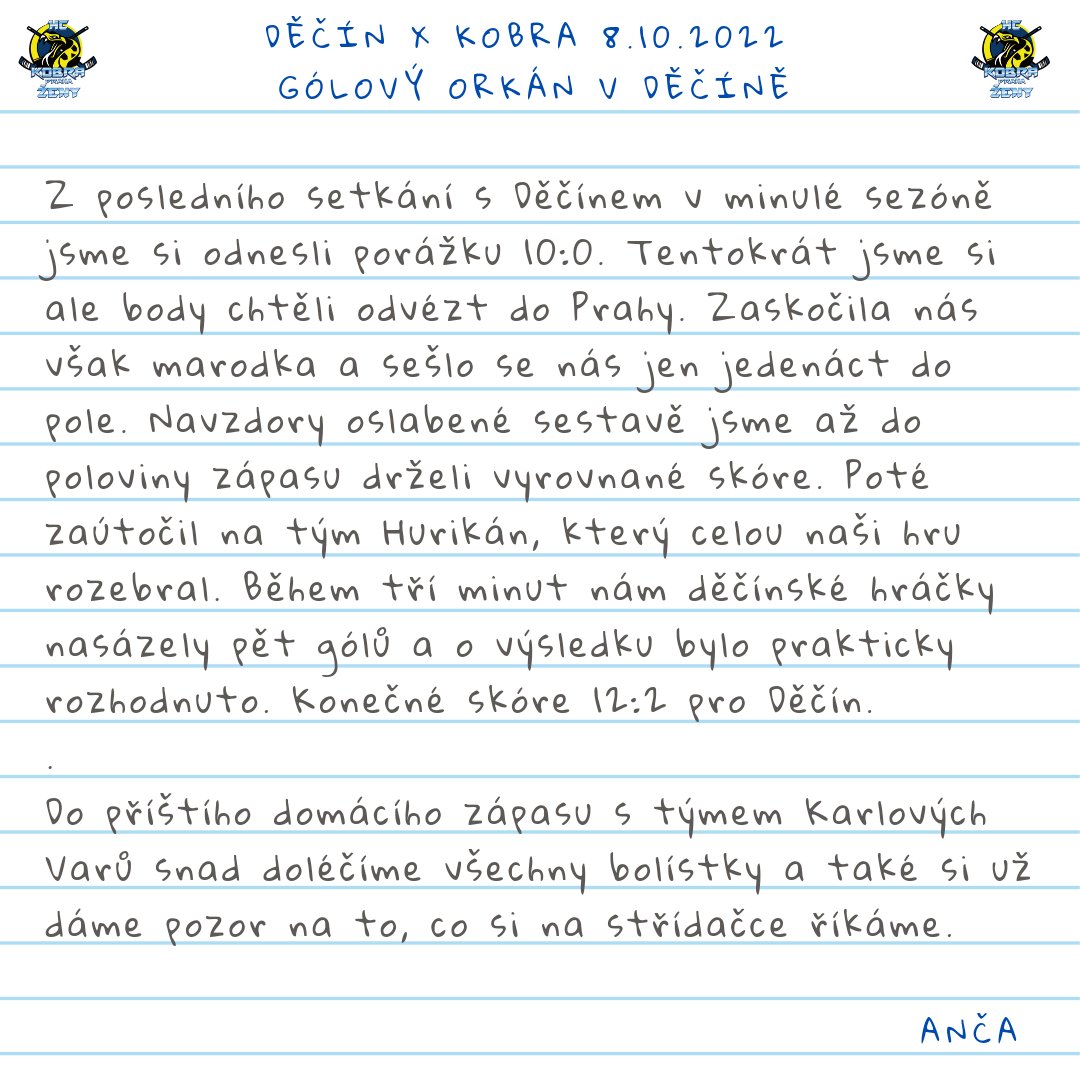 DĚČÍN X KOBRA 8.10.2022
GÓLOVÝ ORKÁN V DĚČÍNĚ
HC
KOBRA
PRAHA
ŽENY
HC
KOBRA
PRAHA
ŽENY
Z posledního setkání s Děčínem v minulé sezóně
jsme si odnesli porážku 10:0. Tentokrát jsme si
ale body chtěli odvézt do Prahy. Zaskočila nás
však marodka a sešlo se nás jen jedenáct do
pole. Navzdory oslabené sestavě jsme až do
poloviny zápasu drželi vyrovnané skóre. Poté
zaútočil na tým Hurikán, který celou naši hru
rozebral. Během tří minut nám děčínské hráčky
nasázely pět gólů a o výsledku bylo prakticky
rozhodnuto. Konečné skóre 12:2 pro Děčín.
.
Do příštího domácího zápasu s týmem Karlových
Varů snad doléčíme všechny bolístky a také si už
dáme pozor na to, co si na střídačce říkáme.
ANČA